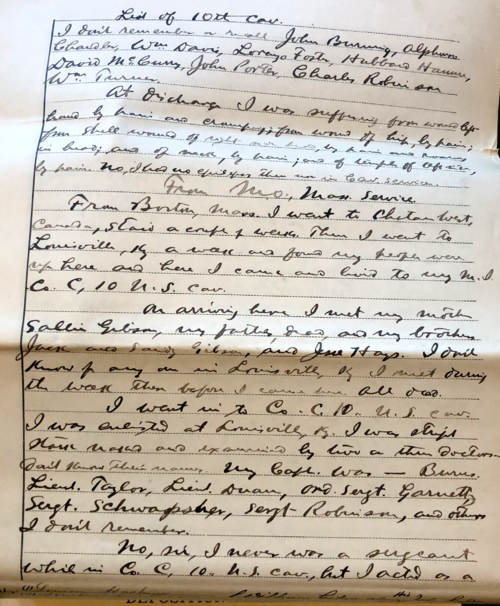 List of 10th Cav.
I don't remember a small John Burning, Alphonso
Chandler, Wm Davis, Lorenzo Foster, Hubbard Hanner,
David McCurry, John Porter, Charles Robinson
Wm Turner.
At Discharge I was suffering from wound left
hand by pain and cramping; from wound of hip, by pain;
from shell wound of right side head, by pain and roaring
in head; and of neck, by pain; and of temple
by pain. No, I had no then nor in Cav. service.
From Mo., Mass. Service.
From Boston, Mass. I went to Chatan West,
Canada, staid a couple of weeks. Then I went to
Louisville, Ky a week and found my people were
up here and here I came and lived to my M. I.
Co. C, 10 U.S. cav.
On arriving here I met my mother
Sallie Gibson, my father, dead, and my brothers
Jack and Sandy Gibson, and Jesse Hays. I don't
know of any one in Louisville, Ky I met during
the week then before I came here. All dead.
I went in to Co. C. 10. U.S. cav.
I was enlisted at Louisville, Ky. I was stript
stark naked and examined by two a three doctors-
don't know their names. My Capt. was — Burns.
Lieut. Taylor, Lieut. Duan, Ord. Sergt. Garnett,
Sergt. Schwappsher, Sergt Robinson, and others
I don't remember.
No, sir, I never was a sergeant
while in Co. C, 10. U.S. cav., but I acted as a